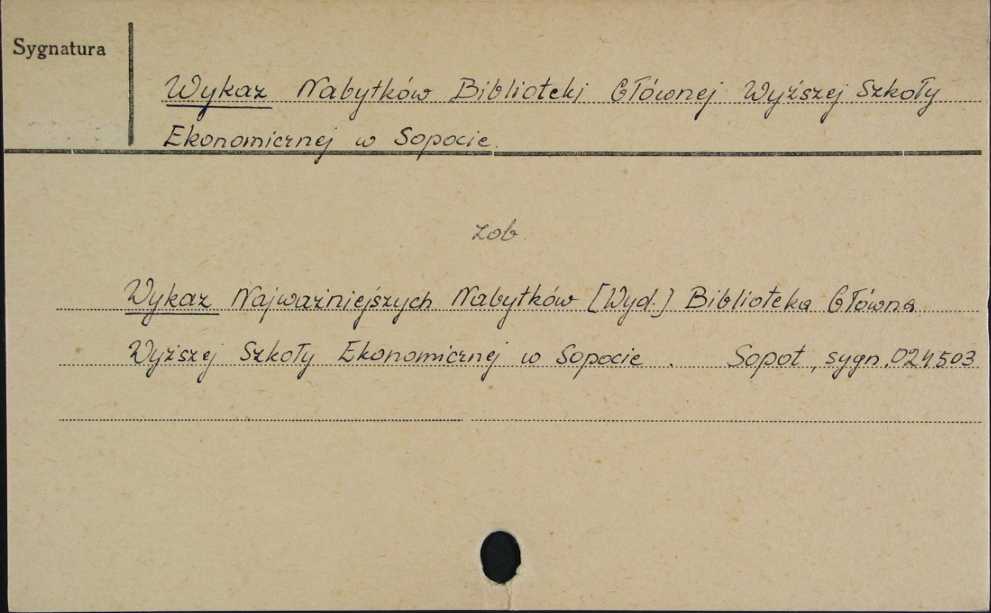 Sygnatura
Wykaz Nabytków Biblioteki Głównej Wyższej Szkoły
Ekonomicznej w Sopocie.
zob
Wykaz Najważniejszych Nabytków [Wyd.] Biblioteka Główna
Wyższej Szkoły Ekonomicznej w Sopocie. Sopot, sygn. 024503